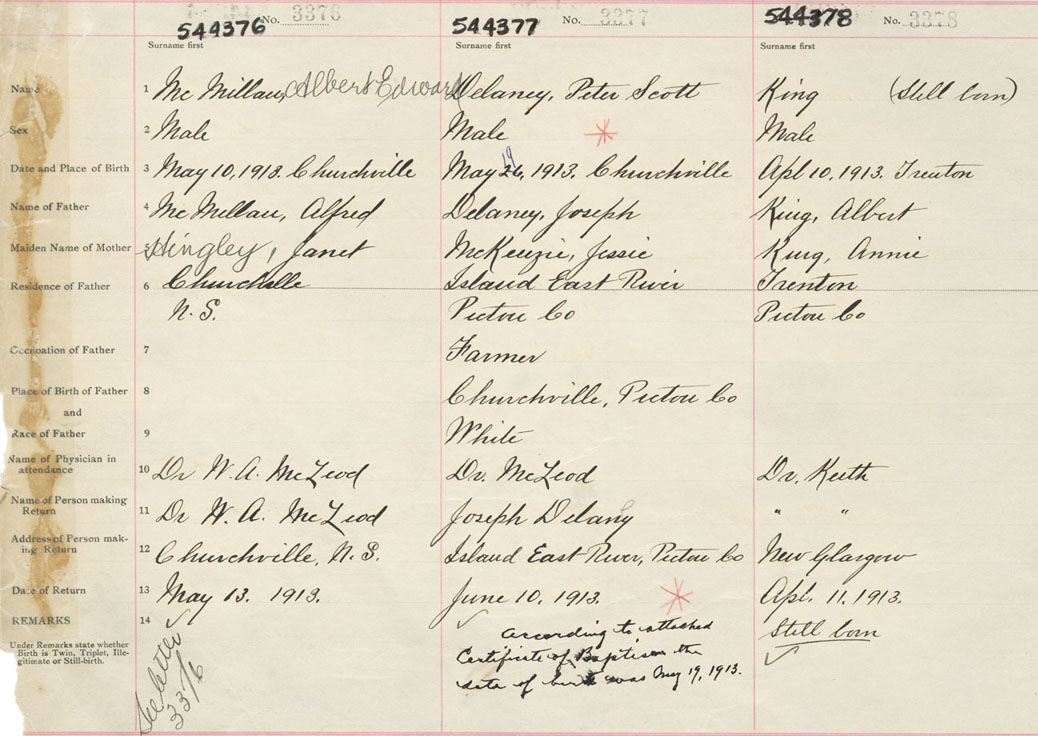 544376 No. 3376 544377 No. 3377 544378 No. 3378
Surname first Surname first Surname first
Name 1 Mc Millan, Albert Edward Delaney, Peter Scott King (Still born)
Sex 2 Male Male Male
Date and Place of Birth 3 May 10, 1913. Churchville May 26, 19 1913. Churchville Apl 10, 1913. Trenton
Name of Father 4 Mc Millan, Alfred Delaney, Joseph King, Albert
Maiden Name of Mother 5 Hingley, Janet McKenzie, Jessie King, Annie
Residence of Father 6 Churchille Island East River Trenton
N. S. Pictou Co Pictou Co
Occupation of Father 7 Farmer
Place of Birth of Father 8 Churchville, Pictou Co
and
Race of Father 9 White
Name of Physician in
attendance 10 Dr W. A. McLeod Dr. McLeod Dr. Keith
Name of Person making
Return 11 Dr W. A. McLeod Joseph Delany " "
Address of Person mak-
ing Return 12 Churchville, N. S. Island East River, Pictou Co New Glasgow
Date of Return 13 May 13. 1913. June 10, 1913. Apl. 11. 1913.
REMARKS 14 Still born
Under Remarks state whether
Birth is Twin, Triplet, Ille-
gitimate or Still-birth.
See letter
3376
According to attached
Certificate of Baptism the
date of birth was May 19, 1913.